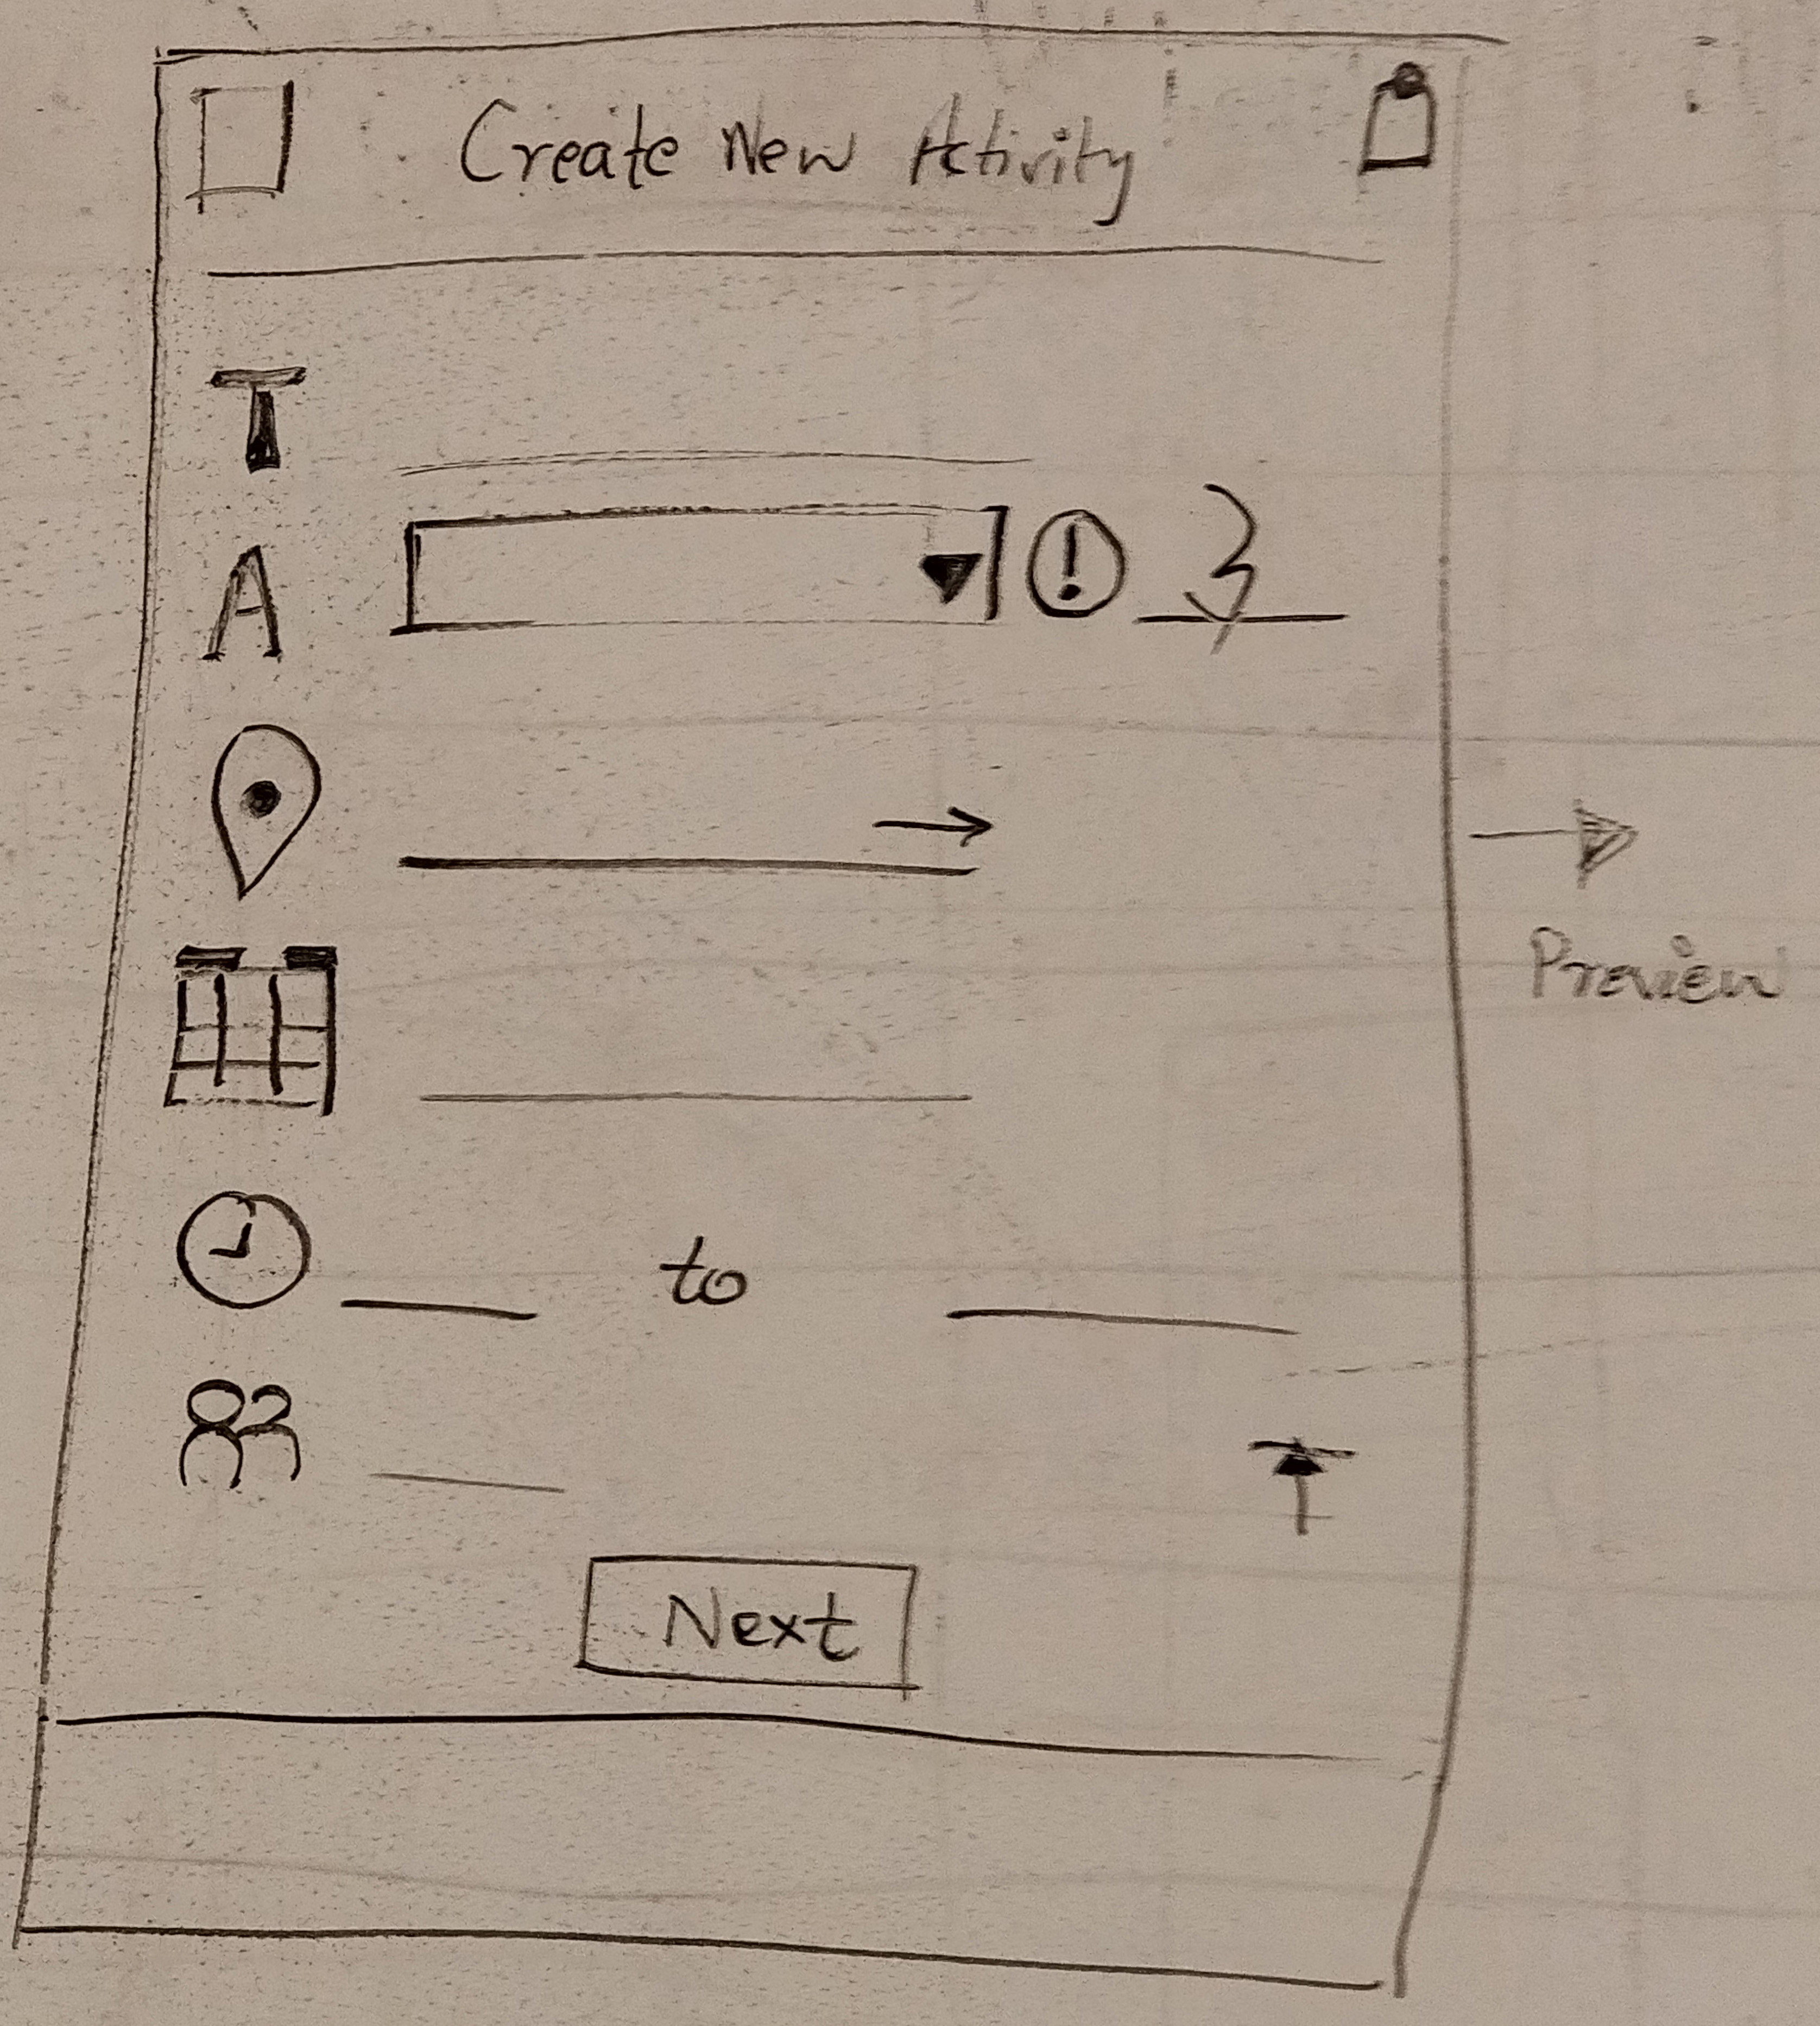 Create New Activity
T
A
!
3
Preview
to
Next